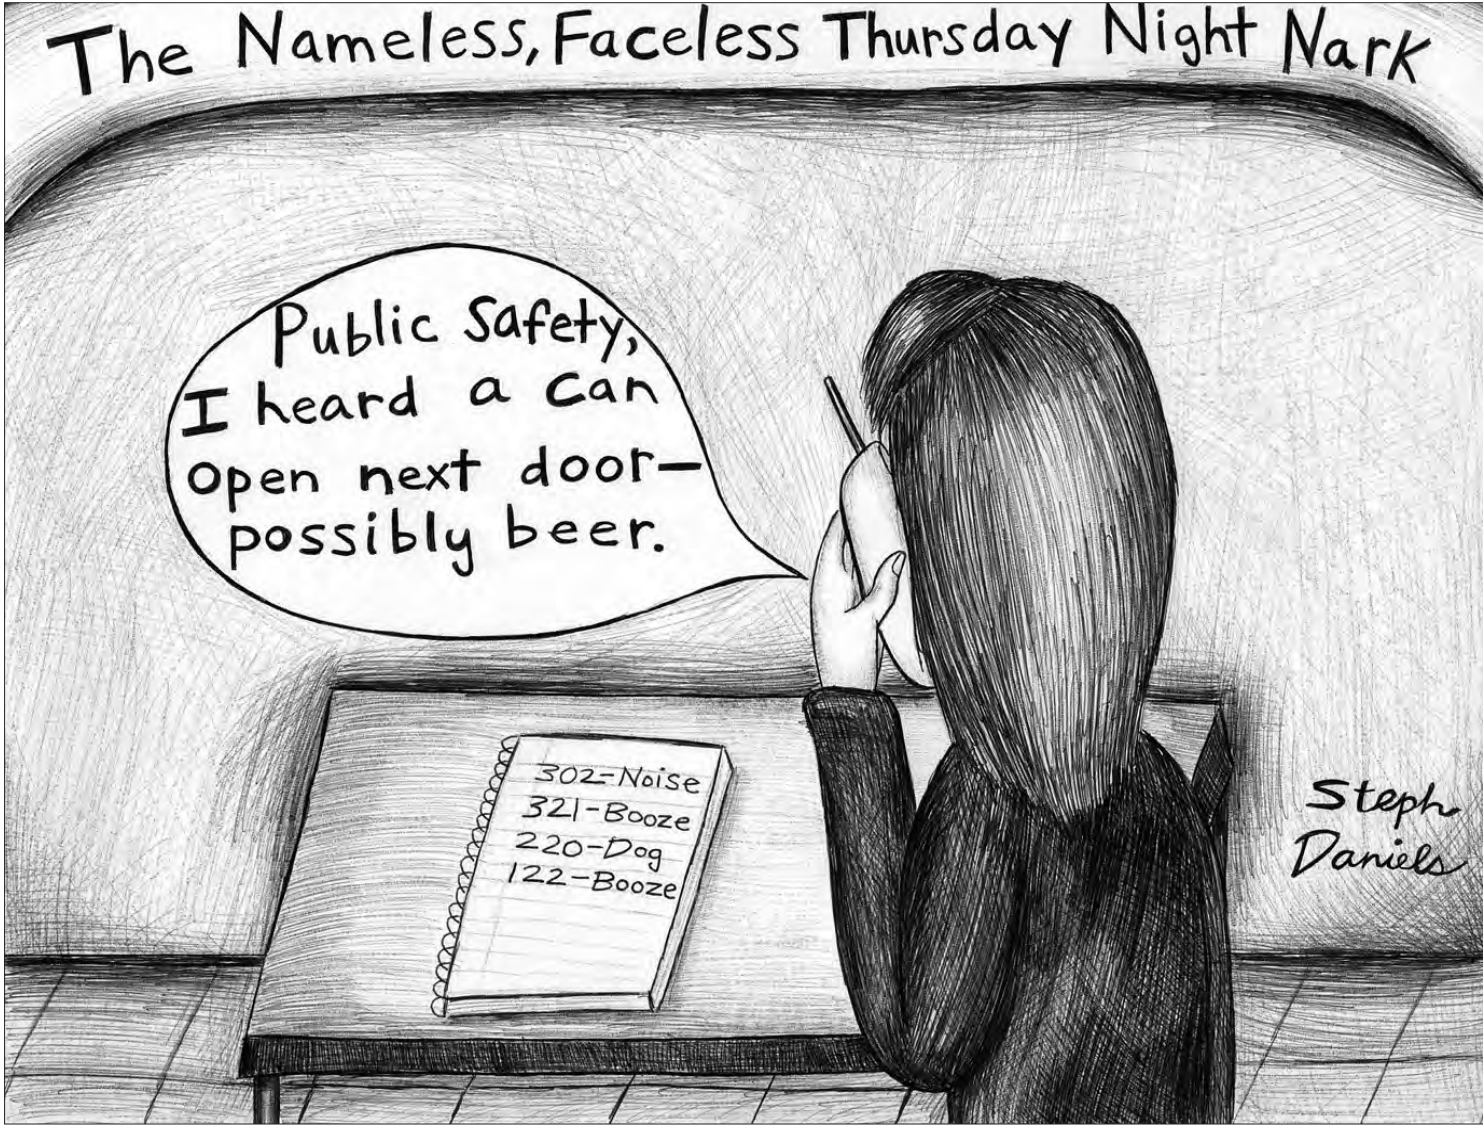 The Nameless, Faceless Thursday Night Nark
Public Safety,
I heard a can
open next door—
possibly beer.
302-Noise
321-Booze
220-Dog
122-Booze
Steph
Daniels